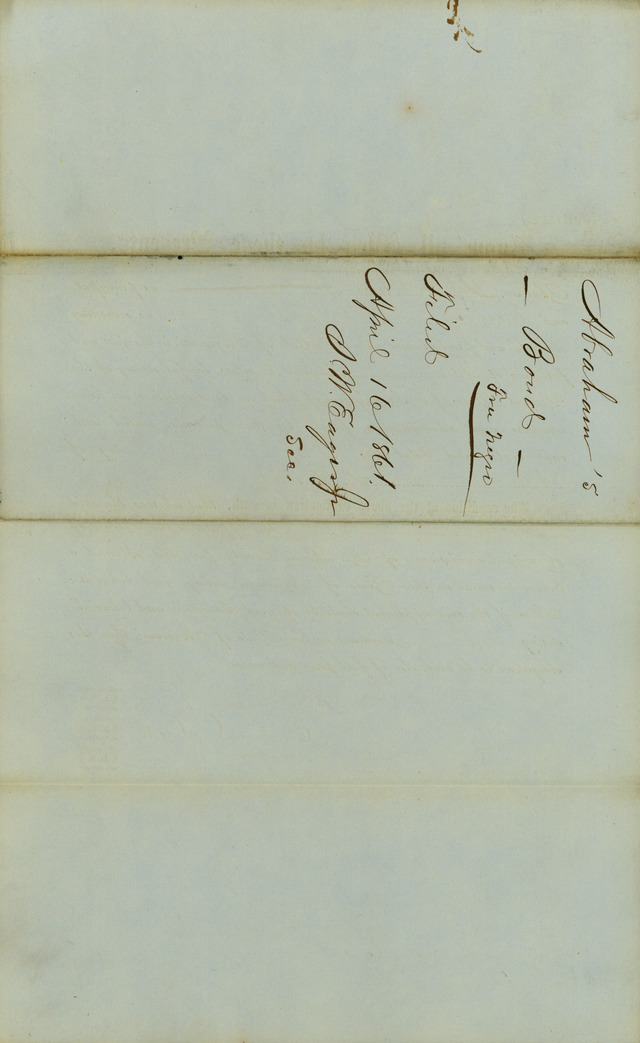 Abraham's
— Bond —
Free Negro
Filed
April 16 1861.
S. W. Eager Jr
Sec.